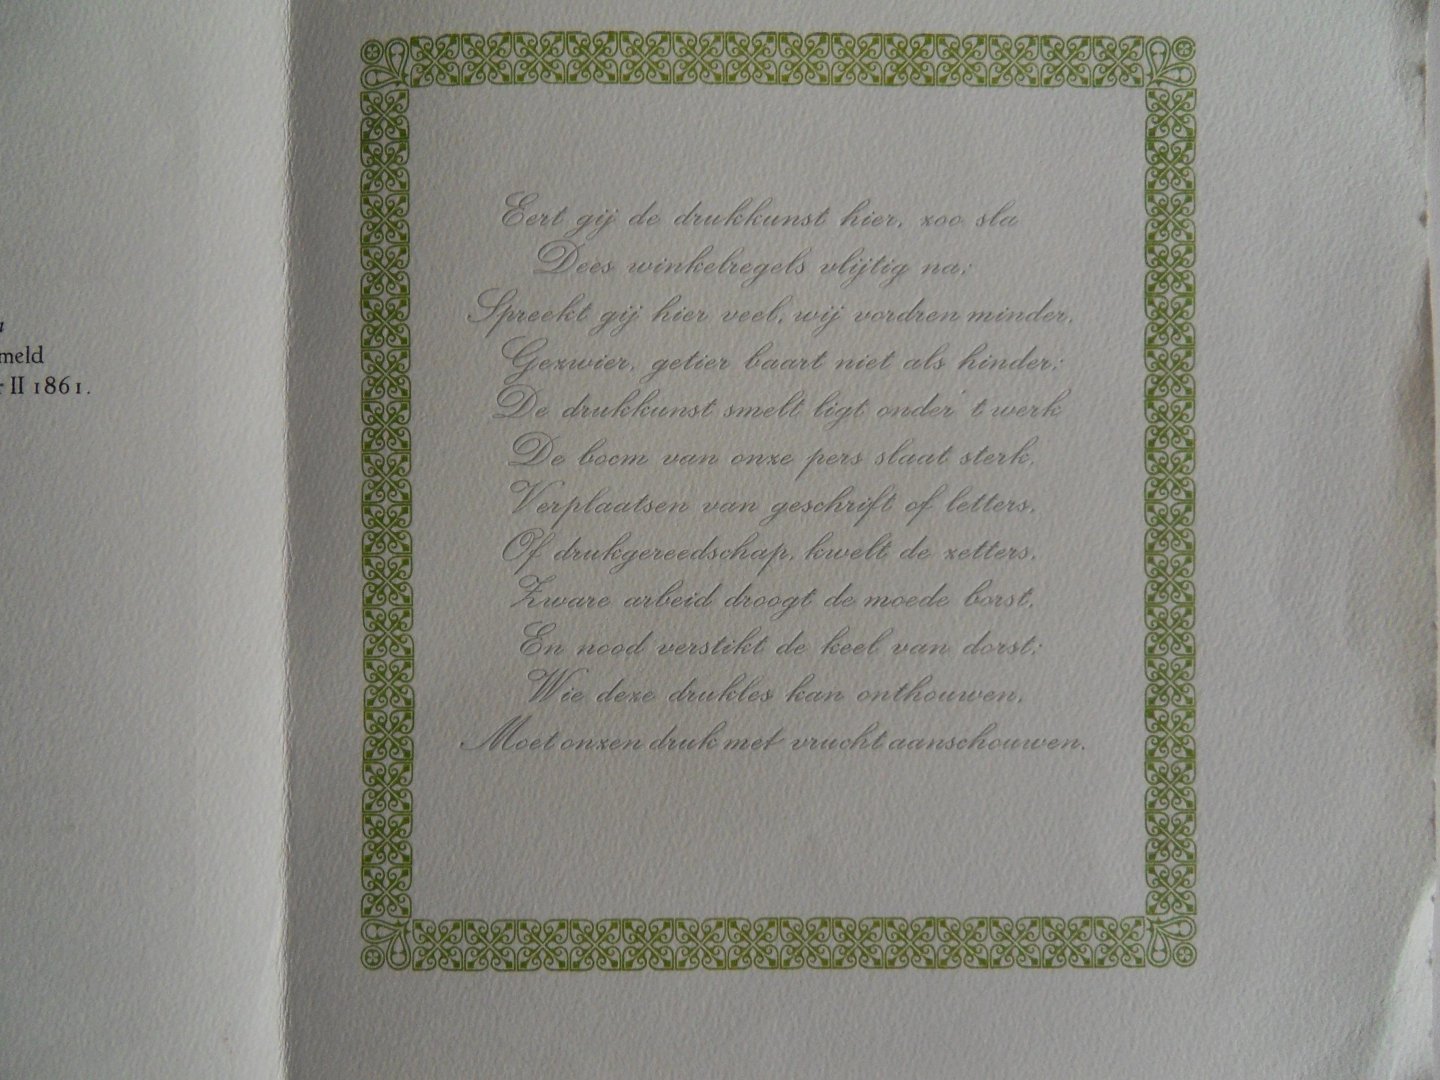 meld
II 1861.
Eert gij de drukkunst hier, zoo sla
Dees winkelregels vlijtig na;
Spreekt gij hier veel, wij vordren minder,
Gezwier, getier baart niet als hinder;
De drukkunst smelt ligt onder 't werk
De boom van onze pers slaat sterk,
Verplaatsen van geschrift of letters,
Of drukgereedschap, kwelt de zetters,
Zware arbeid droogt de moede borst,
En nood verstikt de keel van dorst;
Wie deze drukles kan onthouwen,
Moet onzen druk met vrucht aanschouwen.